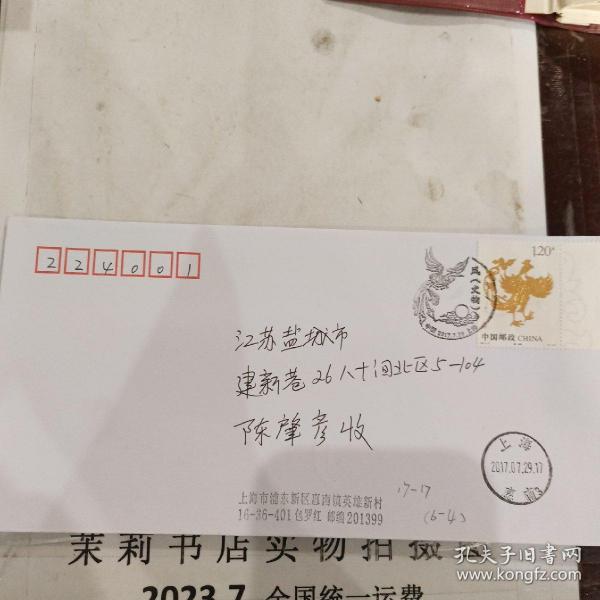 224001
120分
中国邮政 CHINA
凤(文物)
江苏盐城市
建新巷26人十间北区5-104
陈肇彦收
上海
2017.07.29.17
上海市浦东新区惠南镇英雄新村
16-36-401 包罗红 邮编201399
17-17
(6-4)
茉莉书店实物拍摄
2023.7 全国统一运费
孔夫子旧书网
www.kongfz.com